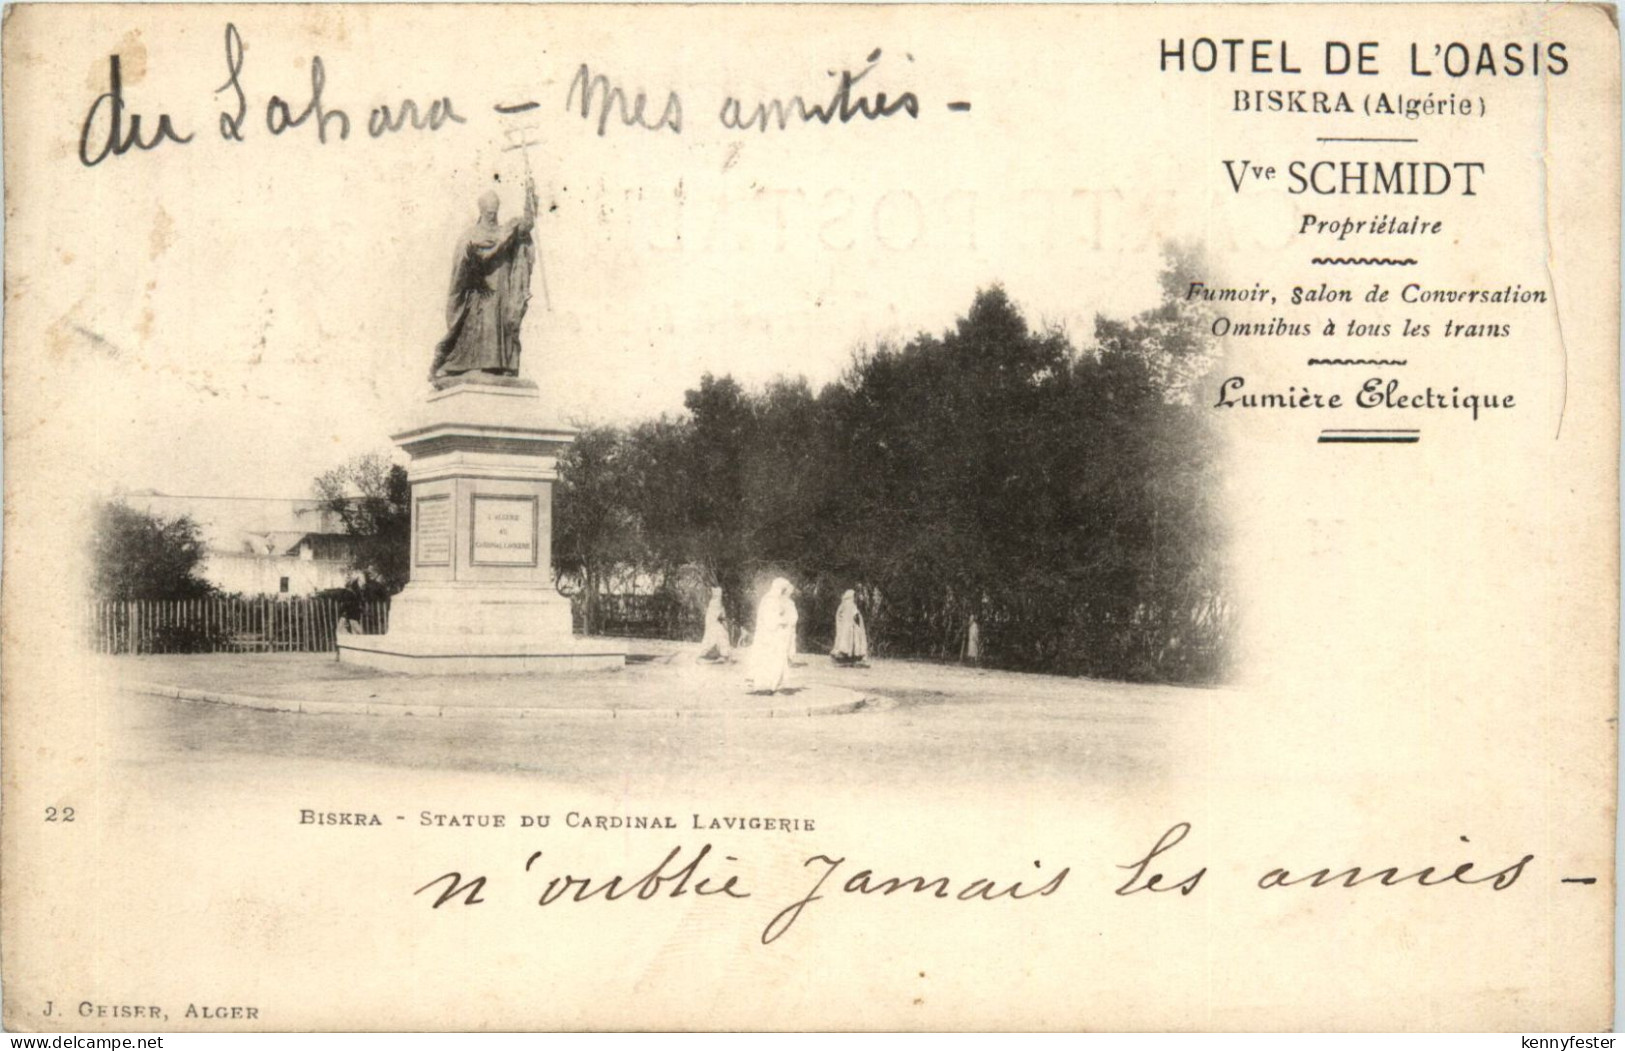 du Sahara - mes amitiés -
HOTEL DE L'OASIS
BISKRA (Algérie)
Vve SCHMIDT
Propriétaire
Fumoir, Salon de Conversation
Omnibus à tous les trains
Lumière Electrique
CARTE POSTALE
L'ALGERIE
AU
CARDINAL LAVIGERIE
22
BISKRA - STATUE DU CARDINAL LAVIGERIE
n'oublie Jamais les amies -
J. GEISER, ALGER
www.delcampe.net
kennyfester